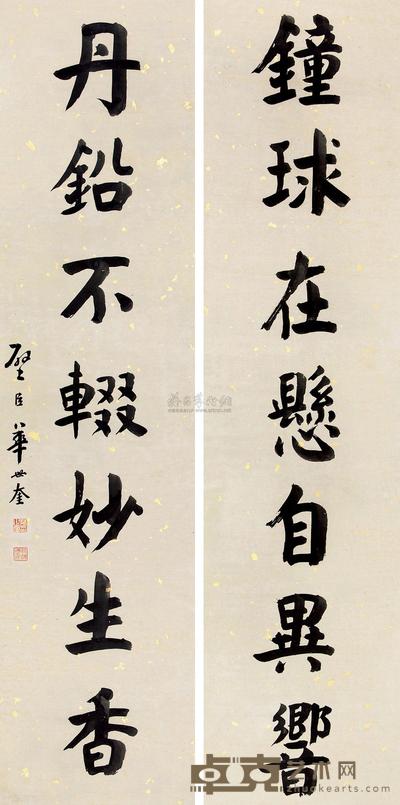 鐘球在懸自異響
丹鉛不輟妙生香
璧臣華世奎
卓克艺术网